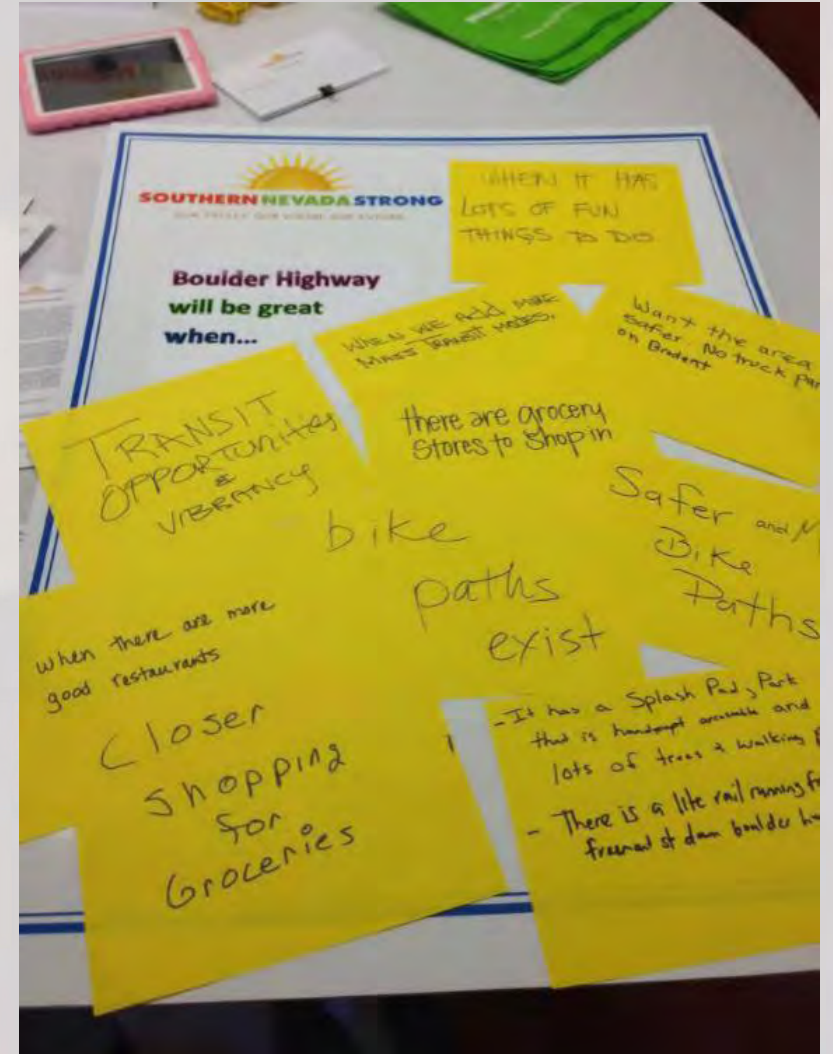 SOUTHERN NEVADA STRONG
OUR VALLEY. OUR VISION. OUR FUTURE.
Boulder Highway
will be great
when...
WHEN IT HAS
LOTS OF FUN
THINGS TO DO
WHEN WE ADD MORE
MASS TRANSIT MODES.
Want the area
safer. No truck
on
TRANSIT
OPPORTUNITIES
&
VIBRANCY
there are grocery
Stores to Shop in
bike
paths
exist
Safer and
Bike
Paths
when there are more
good restaurants
Closer
Shopping
for
Groceries
- It has a Splash Pad, Park
that is and
lots of trees & walking
- There is a lite rail running
st boulder